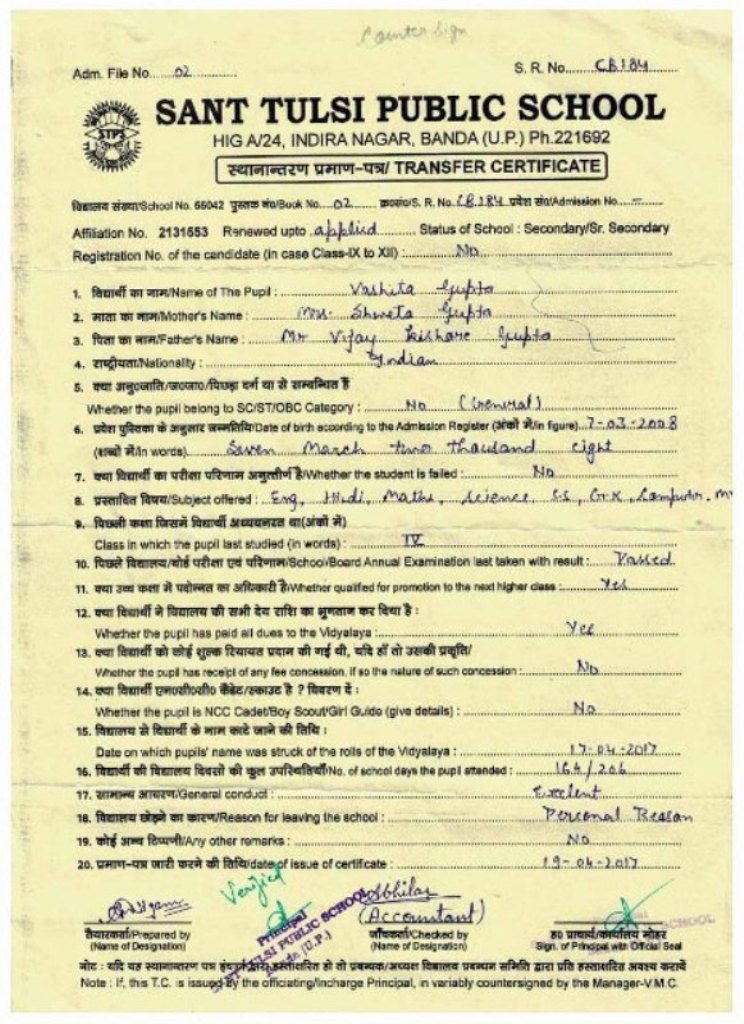 Counter sign
Adm. File No. 02 S. R. No. CB184
STPS
SANT TULSI PUBLIC SCHOOL
HIG A/24, INDIRA NAGAR, BANDA (U.P.) Ph.221692
स्थानान्तरण प्रमाण-पत्र/ TRANSFER CERTIFICATE
विद्यालय संख्या/School No. 55042 पुस्तक सं०/Book No. 02 क्र०सं०/S. R. No. CB184 प्रवेश सं०/Admission No. -
Affiliation No. 2131553 Renewed upto applied Status of School : Secondary/Sr. Secondary
Registration No. of the candidate (in case Class-IX to XII) : No
1. विद्यार्थी का नाम/Name of The Pupil : Vashita Gupta
2. माता का नाम/Mother's Name : Mrs. Shweta Gupta
3. पिता का नाम/Father's Name : Mr Vijay Kishore Gupta
4. राष्ट्रीयता/Nationality : Indian
5. क्या अनु०जाति/ज०जा०/पिछड़ा वर्ग था से सम्बन्धित है
Whether the pupil belong to SC/ST/OBC Category : No (General)
6. प्रवेश पुस्तिका के अनुसार जन्मतिथि/Date of birth according to the Admission Register (अंकों में/in figure) 7-03-2008
(शब्दों में/in words) Seven March two thousand eight
7. क्या विद्यार्थी का परीक्षा परिणाम अनुत्तीर्ण है/Whether the student is failed : No
8. प्रस्तावित विषय/Subject offered : Eng, Hindi, Maths, Science, S.S, G.K, Computer,
9. पिछली कक्षा जिसमें विद्यार्थी अध्ययनरत था(अंकों में)
Class in which the pupil last studied (in words) : IV
10. पिछले विद्यालय/बोर्ड परीक्षा एवं परिणाम/School/Board Annual Examination last taken with result : Passed
11. क्या उच्च कक्षा में पदोन्नत का अधिकारी है/Whether qualified for promotion to the next higher class : Yes
12. क्या विद्यार्थी ने विद्यालय की सभी देय राशि का भुगतान कर दिया है :
Whether the pupil has paid all dues to the Vidyalaya : Yes
13. क्या विद्यार्थी को कोई शुल्क रियायत प्रदान की गई थी, यदि हाँ तो उसकी प्रकृति/
Whether the pupil has receipt of any fee concession, if so the nature of such concession : No
14. क्या विद्यार्थी एन०सी०सी० कैडेट/स्काउट है ? विवरण दें :
Whether the pupil is NCC Cadet/Boy Scout/Girl Guide (give details) : No
15. विद्यालय से विद्यार्थी के नाम काटे जाने की तिथि :
Date on which pupils' name was struck of the rolls of the Vidyalaya : 17-04-2017
16. विद्यार्थी की विद्यालय दिवसों की कुल उपस्थितियाँ/No. of school days the pupil attended : 164/206
17. सामान्य आचरण/General conduct : Excelent
18. विद्यालय छोड़ने का कारण/Reason for leaving the school : Personal Reason
19. कोई अन्य टिप्पणी/Any other remarks : No
20. प्रमाण-पत्र जारी करने की तिथि/date of issue of certificate : 19-04-2017
Verified
Abhilas
(Accountant)
Principal
SANT TULSI PUBLIC SCHOOL
Banda (U.P.)
SCHOOL
तैयारकर्ता/Prepared by जाँचकर्ता/Checked by ह० प्राचार्य/कार्यालय मोहर
(Name of Designation) (Name of Designation) Sign. of Principal with Official Seal
नोट : यदि यह स्थानान्तरण पत्र हस्ताक्षरित हो तो प्रबन्धक/अध्यक्ष विद्यालय प्रबन्धन समिति द्वारा प्रति हस्ताक्षरित अवश्य करायें
Note : If, this T.C. is issued by the officiating/Incharge Principal, in variably countersigned by the Manager-V.M.C.